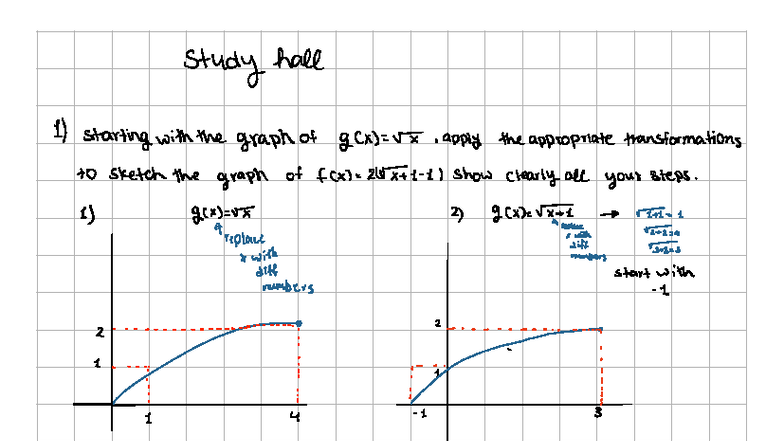 Study hall
1) starting with the graph of g(x)=√x , apply the appropriate transformations
to sketch the graph of f(x)= 2(√x+1-1) show clearly all your steps.
1) g(x)=√x
replace
x with
diff
numbers
2) g(x)=√x+1 →
replace
x with
diff
numbers
start with
-1
2
1
1
4
2
1
-1
3